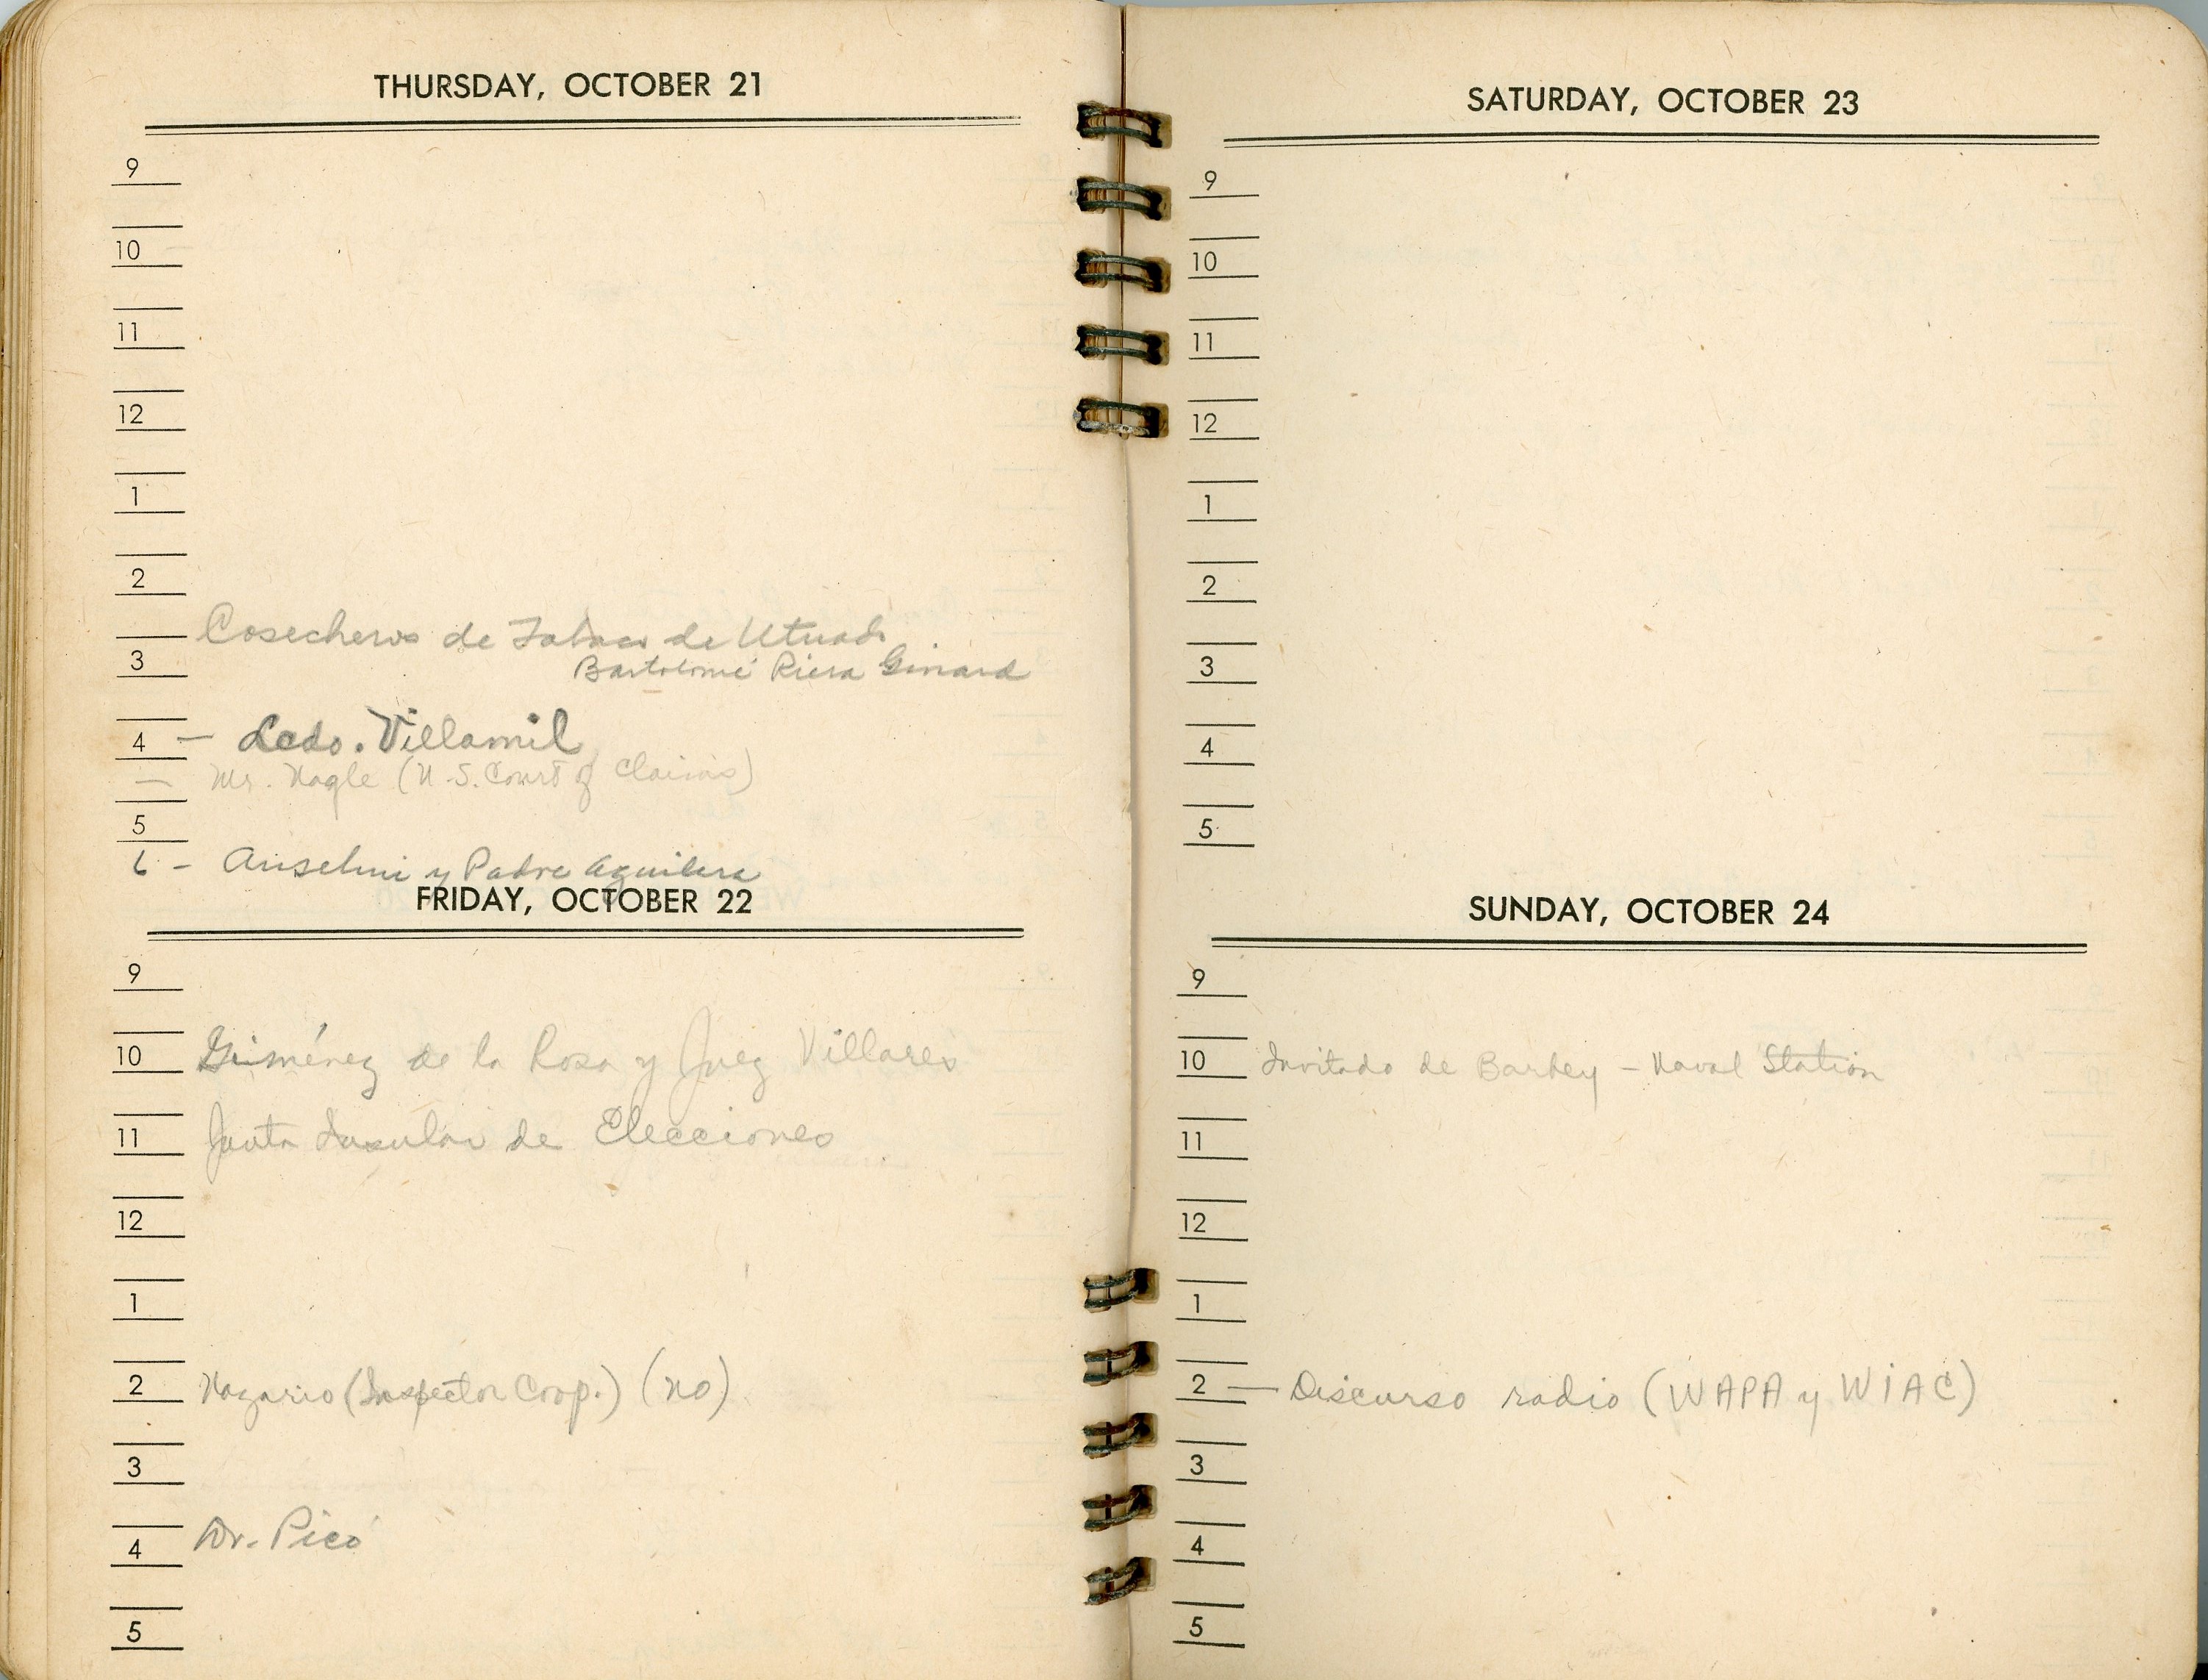 THURSDAY, OCTOBER 21
9
10
11
12
1
2
Cosecheros de Tabaco de Utuado
3 Bartolomé Riera Ginard
4 — Lcdo. Villamil
— Mr. Nagle (U.S. Court of Claims)
5
6 - Anselmi y Padre Aguilera
FRIDAY, OCTOBER 22
9
10 Giménez de la Rosa y Juez Villares
11 Junta Insular de Elecciones
12
1
2 Nazario (Inspector Coop.) (no)
3
4 Dr. Picó
5
SATURDAY, OCTOBER 23
9
10
11
12
1
2
3
4
5
SUNDAY, OCTOBER 24
9
10 Invitado de Barbey - Naval Station
11
12
1
2 — Discurso radio (WAPA y WIAC)
3
4
5